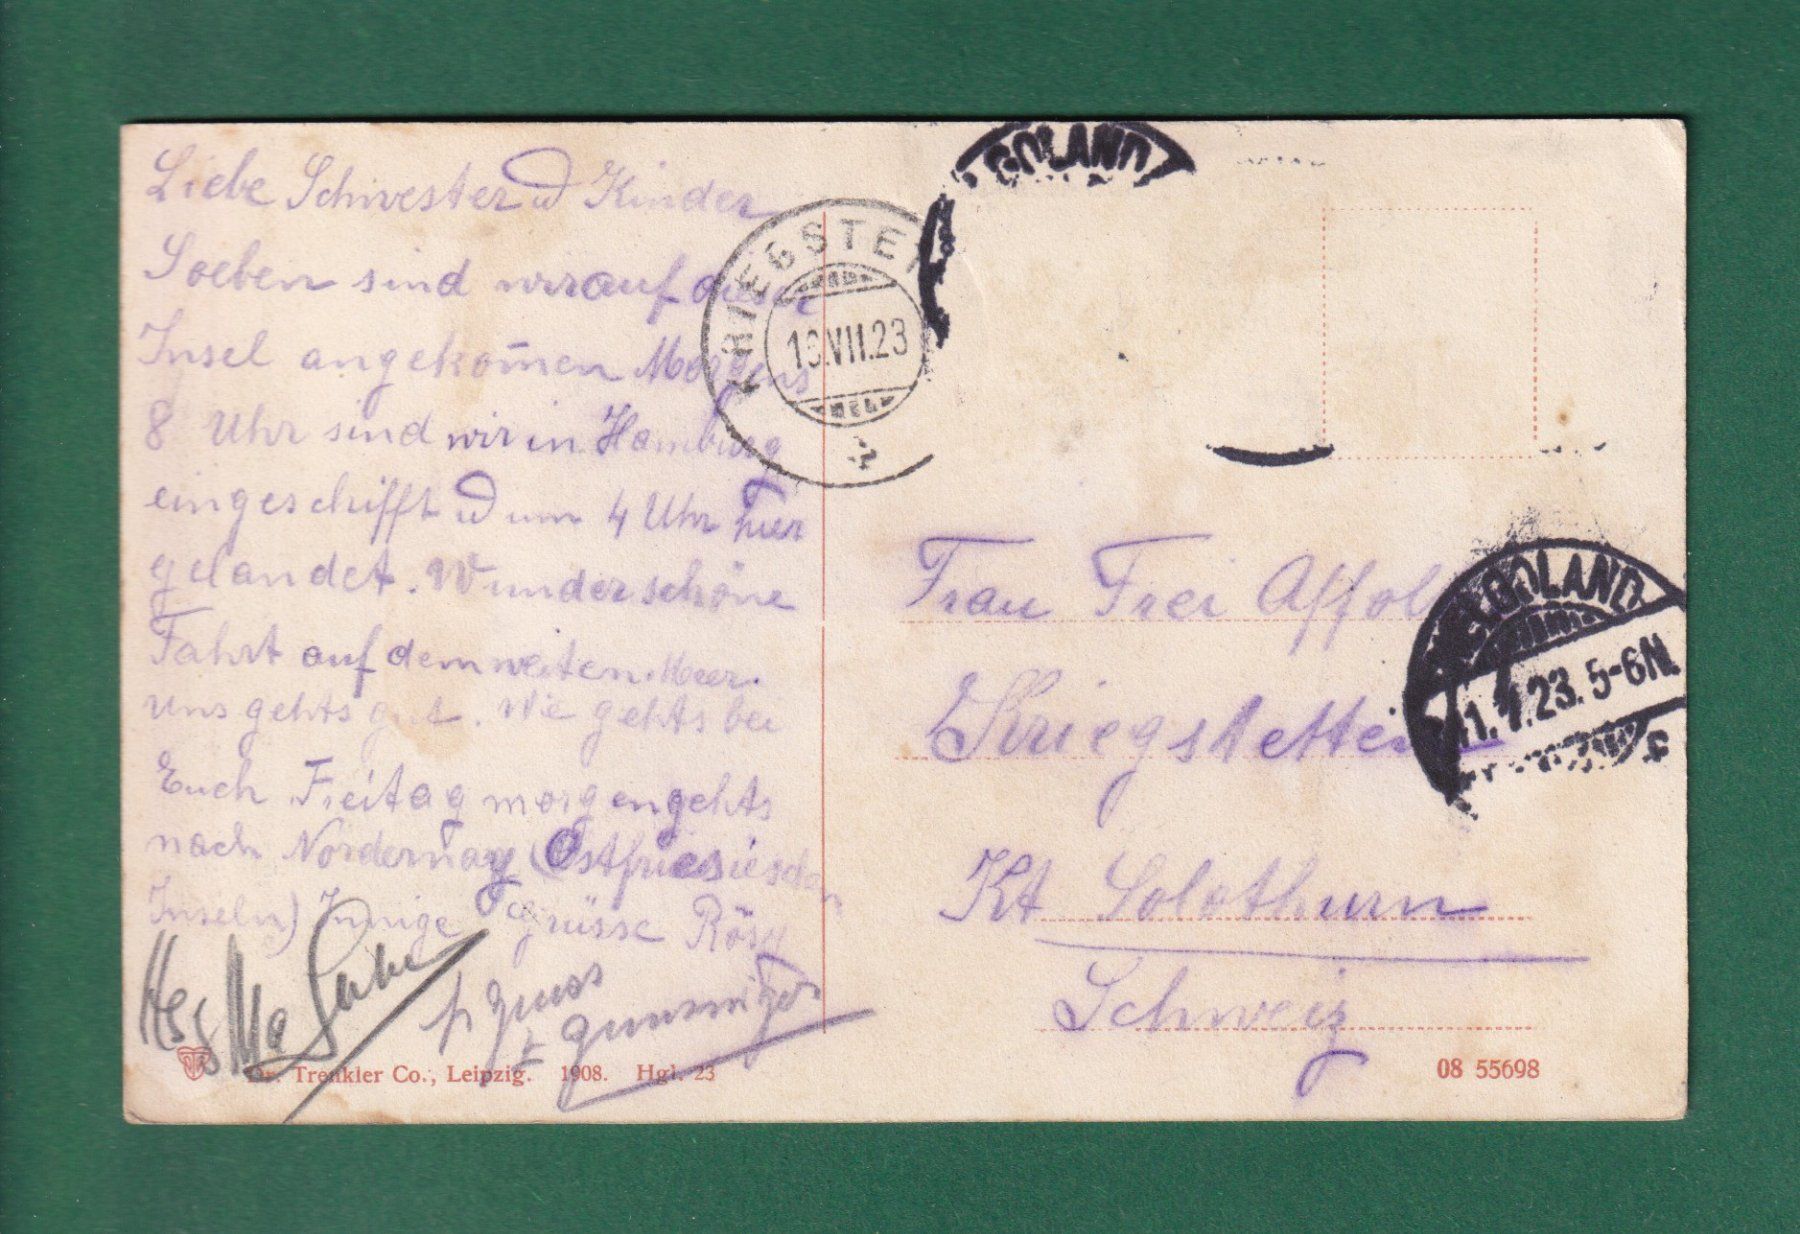 Liebe Schwester u Kinder
Soeben sind wir auf dieser
Insel angekom̄en Morgens
8 Uhr sind wir in Hamburg
eingeschifft u um 4 Uhr hier
gelandet. Wunderschöne
Fahrt auf dem weiten Meer.
Uns gehts gut. Wie gehts bei
Euch Freitag morgen gehts
nach Nordernay (Ostfriesieschen
Inseln) Innige Grüsse Rösy
Gruss
Dr. Trenkler Co., Leipzig. 1908. Hgl. 23
KRIEGSTE
VII.23
GOLAND
Frau Frei Affol
Kriegstetten
Kt Solothurn
Schweiz
HELGOLAND
.23. 5-6N.
08 55698